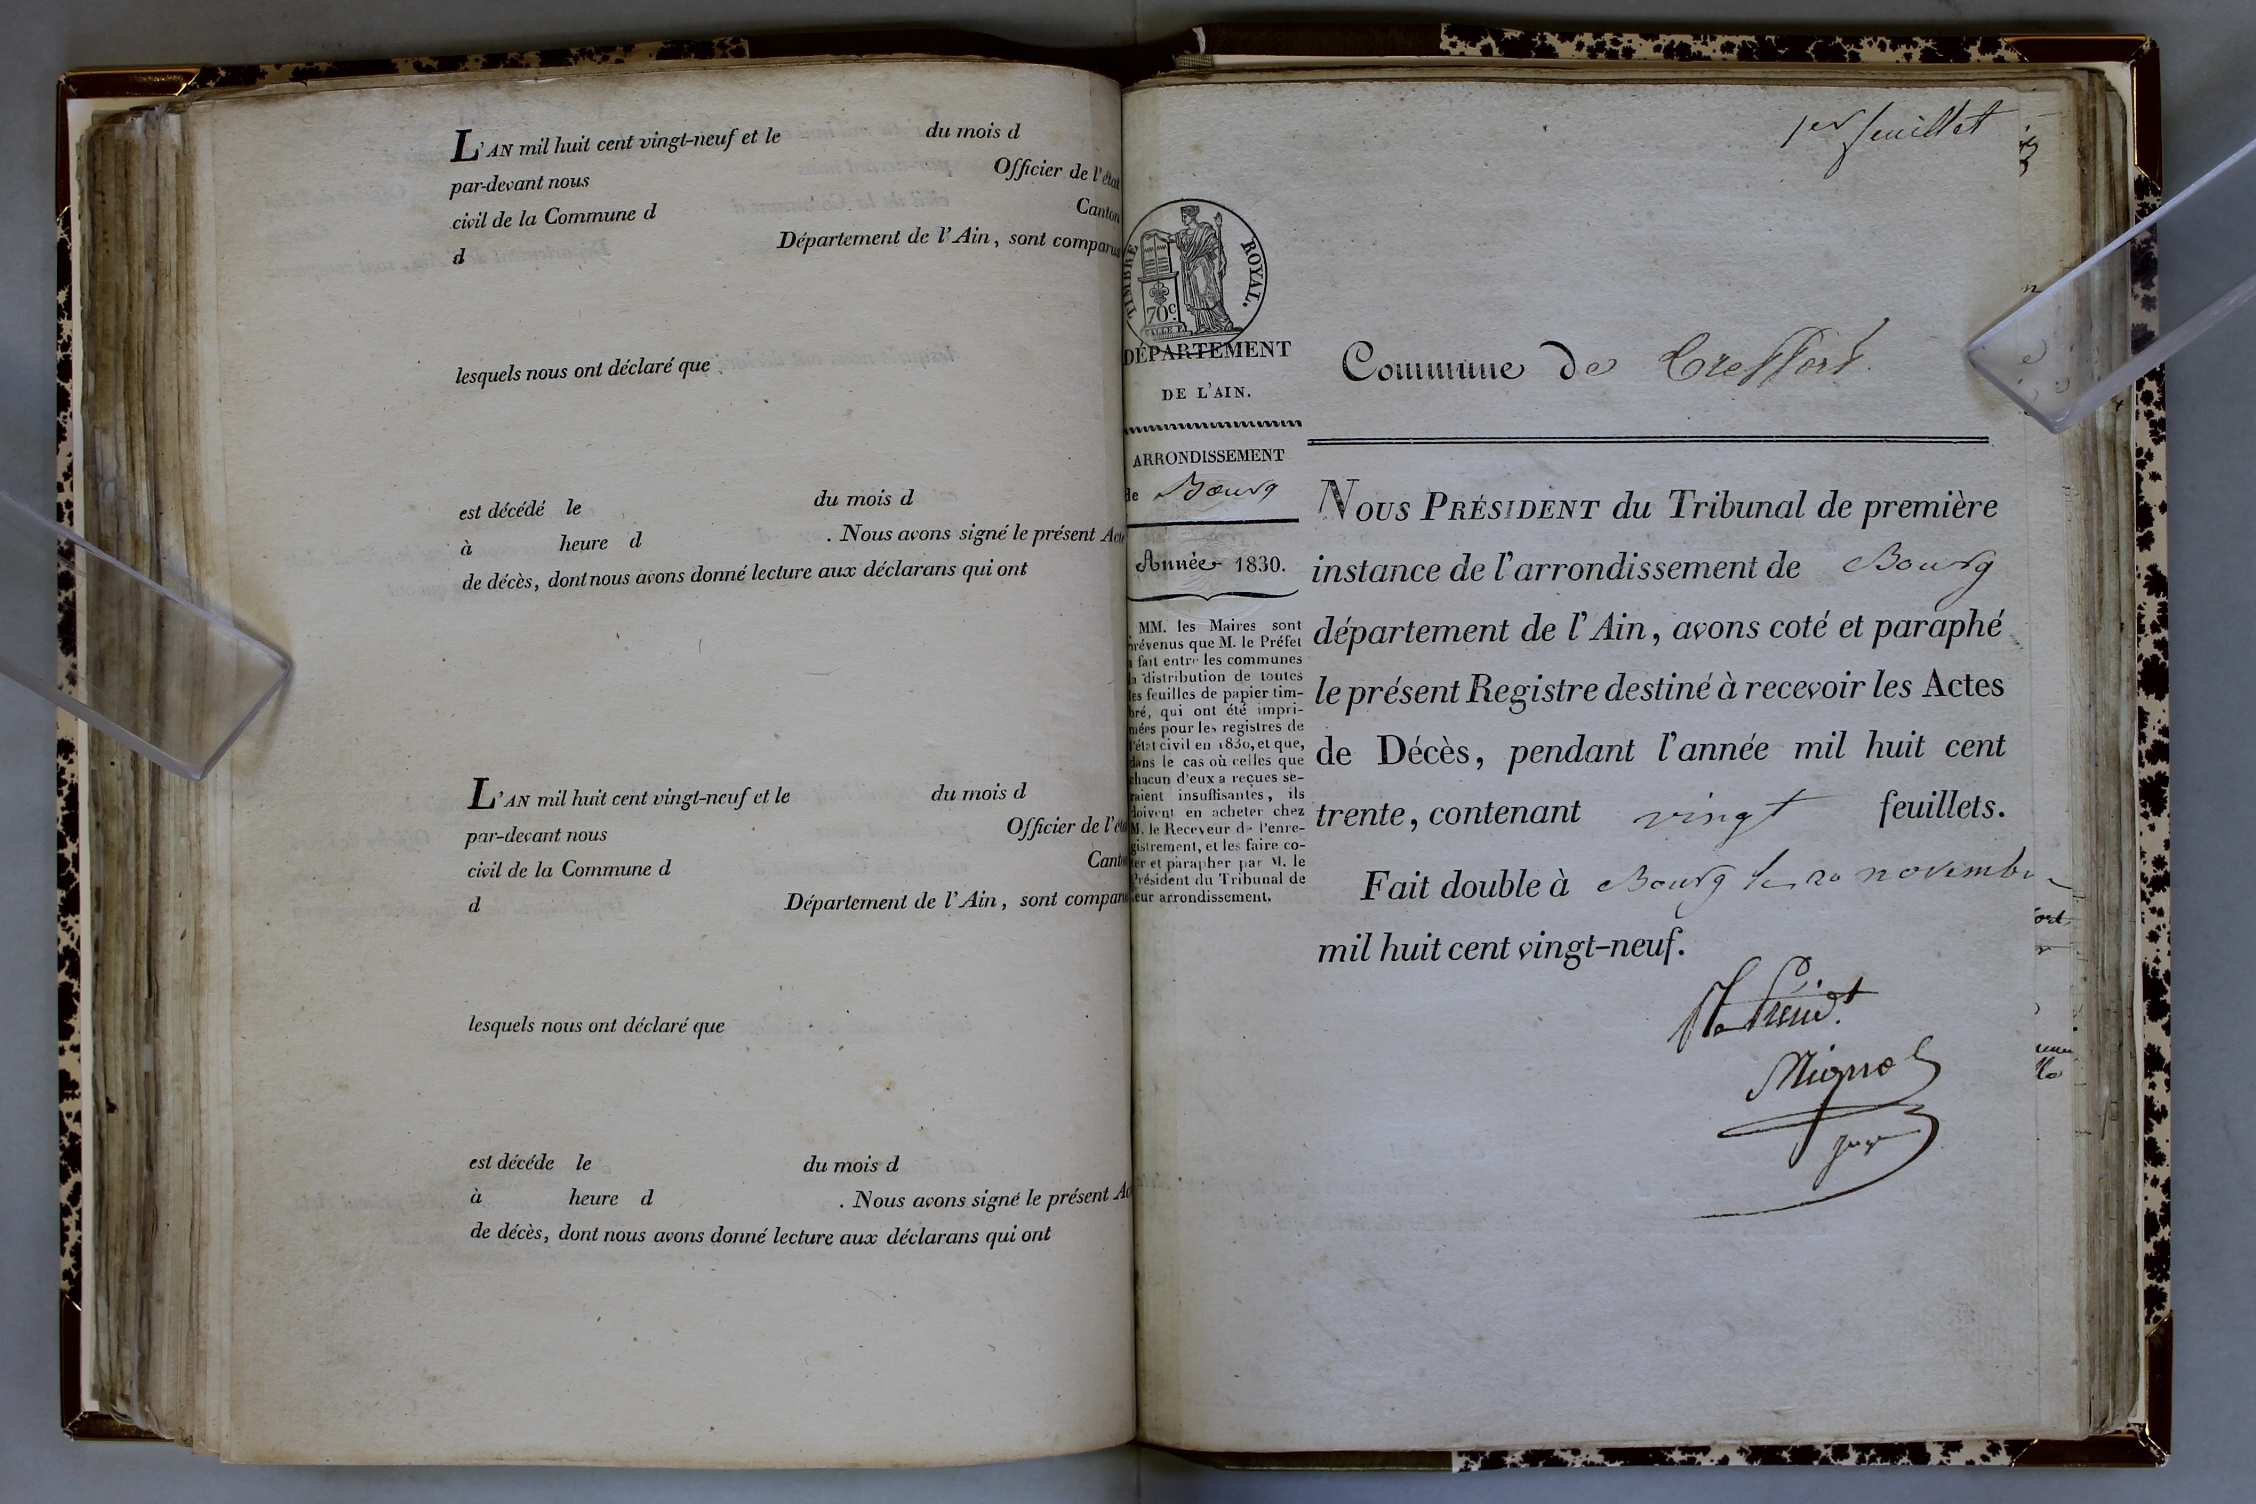 L'AN mil huit cent vingt-neuf et le du mois d
par-devant nous Officier de l'état
civil de la Commune d Canton
d Département de l'Ain, sont comparus
lesquels nous ont déclaré que
est décédé le du mois d
à heure d . Nous avons signé le présent Acte
de décès, dont nous avons donné lecture aux déclarans qui ont
L'AN mil huit cent vingt-neuf et le du mois d
par-devant nous Officier de l'éta
civil de la Commune d Canto
d Département de l'Ain, sont comparu
lesquels nous ont déclaré que
est décéde le du mois d
à heure d . Nous avons signé le présent Ac
de décès, dont nous avons donné lecture aux déclarans qui ont
1er feuillet
TIMBRE ROYAL.
70c.
DÉPARTEMENT
DE L'AIN.
ARRONDISSEMENT
de Bourg
Année 1830.
MM. les Maires sont
prévenus que M. le Préfet
a fait entre les communes
la distribution de toutes
les feuilles de papier tim-
bré, qui ont été impri-
mées pour les registres de
l'état civil en 1830, et que,
dans le cas où celles que
chacun d'eux a reçues se-
raient insuffisantes, ils
doivent en acheter chez
M. le Receveur de l'enre-
gistrement, et les faire co-
ter et parapher par M. le
Président du Tribunal de
leur arrondissement.
Commune de Treffort
NOUS PRÉSIDENT du Tribunal de première
instance de l'arrondissement de Bourg
département de l'Ain, avons coté et paraphé
le présent Registre destiné à recevoir les Actes
de Décès, pendant l'année mil huit cent
trente, contenant vingt feuillets.
Fait double à Bourg le 20 novembre
mil huit cent vingt-neuf.
juge